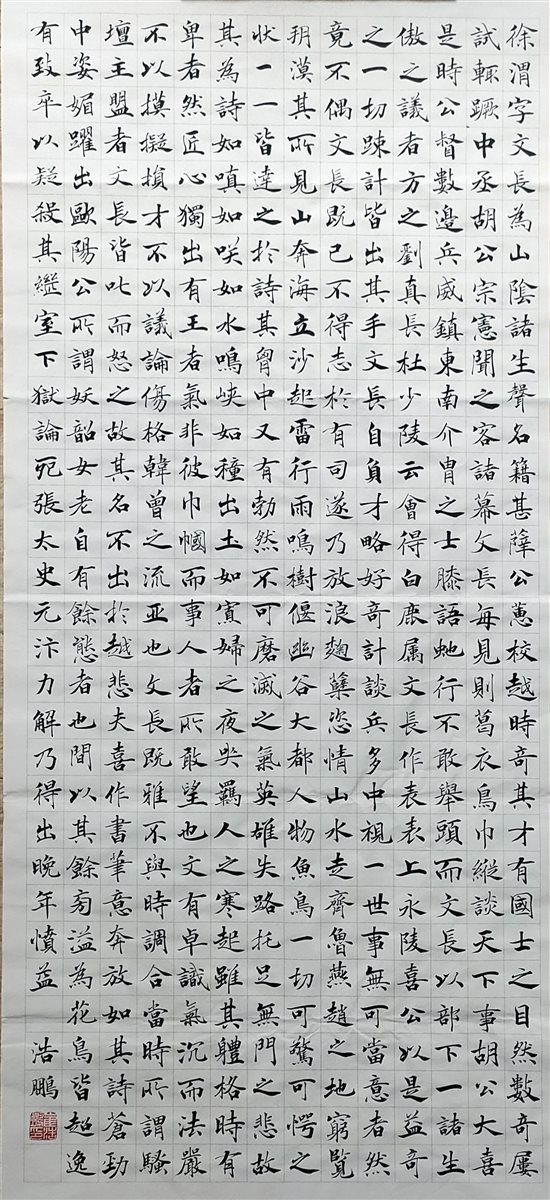 徐渭字文長為山陰諸生聲名籍甚薛公蕙校越時奇其才有國士之目然數奇屢
試輒蹶中丞胡公宗憲聞之客諸幕文長每見則葛衣烏巾縱談天下事胡公大喜
是時公督數邊兵威鎮東南介胄之士膝語虵行不敢舉頭而文長以部下一諸生
傲之議者方之劉真長杜少陵云會得白鹿属文長作表表上永陵喜公以是益奇
之一切疎計皆出其手文長自負才略好奇計談兵多中視一世事無可當意者然
竟不偶文長既已不得志於有司遂乃放浪麴蘗恣情山水走齊魯燕趙之地窮覽
朔漠其所見山奔海立沙起雷行雨鳴樹偃幽谷大都人物魚鳥一切可驚可愕之
狀一一皆達之於詩其胷中又有勃然不可磨滅之氣英雄失路托足無門之悲故
其為詩如嗔如咲如水鳴峽如種出土如寡婦之夜哭羈人之寒起雖其體格時有
卑者然匠心獨出有王者氣非彼巾幗而事人者所敢望也文有卓識氣沉而法嚴
不以摸擬損才不以議論傷格韓曾之流亞也文長既雅不與時調合當時所謂騷
壇主盟者文長皆叱而怒之故其名不出於越悲夫喜作書筆意奔放如其詩蒼勁
中姿媚躍出歐陽公所謂妖韶女老自有餘態者也間以其餘旁溢為花鳥皆超逸
有致卒以疑殺其繼室下獄論死張太史元汴力解乃得出晚年憤益 浩鵬